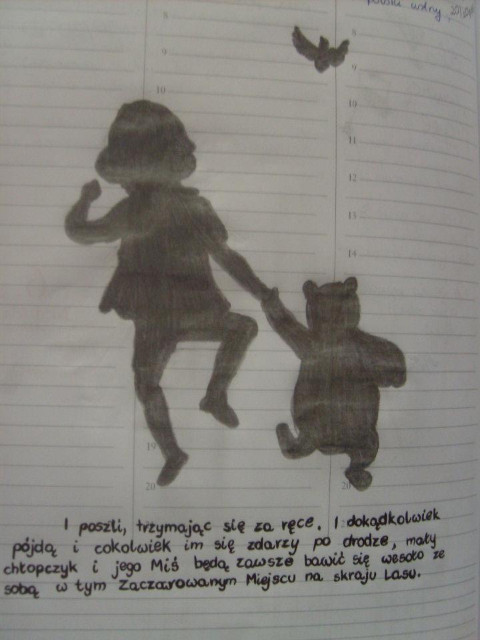 polski wolny
8
9
10
8
9
10
11
12
13
14
19
20
20
I poszli, trzymając się za ręce. I dokądkolwiek
pójdą i cokolwiek im się zdarzy po drodze, mały
chłopczyk i jego Miś będą zawsze bawić się wesoło ze
sobą w tym Zaczarowanym Miejscu na skraju Lasu.